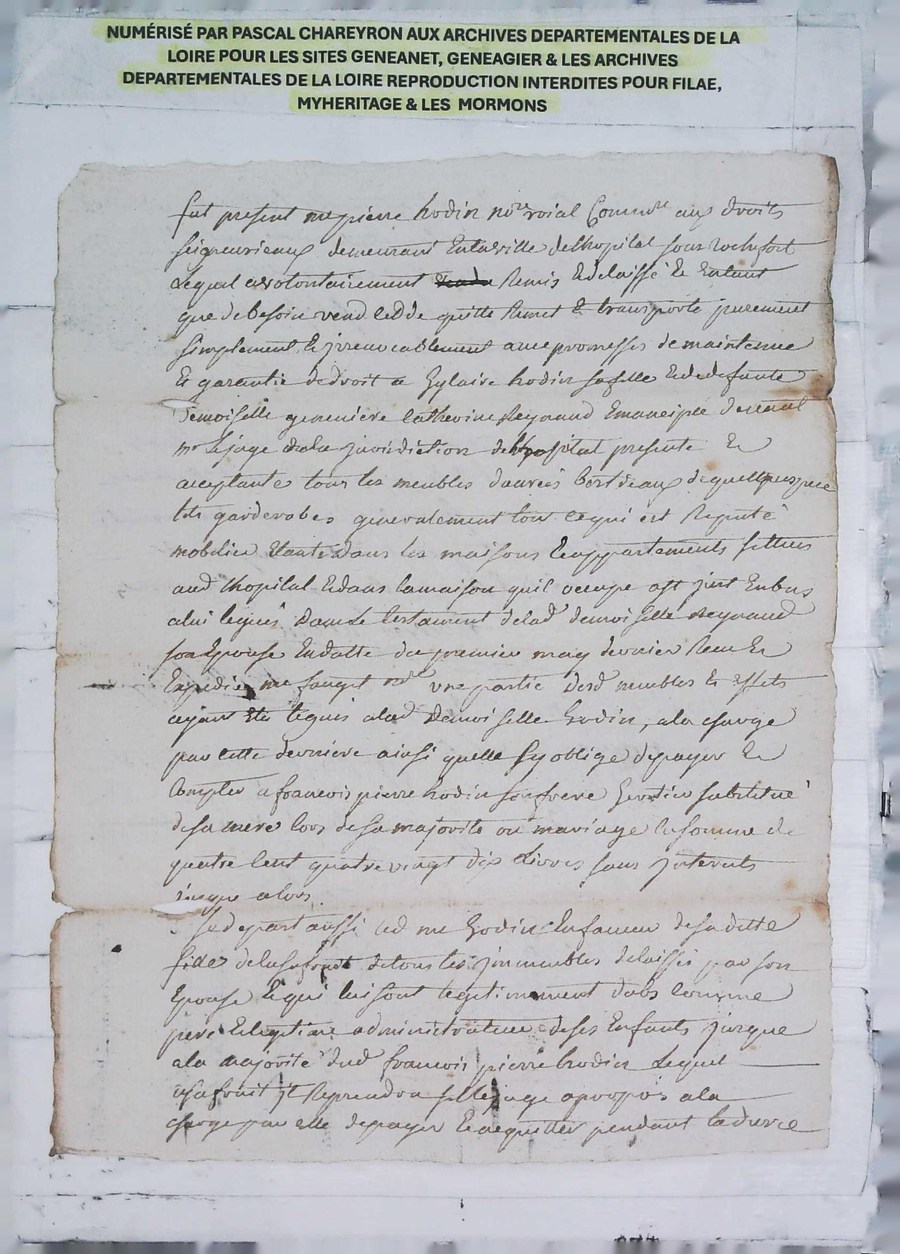 NUMÉRISÉ PAR PASCAL CHAREYRON AUX ARCHIVES DEPARTEMENTALES DE LA
LOIRE POUR LES SITES GENEANET, GENEAGIER & LES ARCHIVES
DEPARTEMENTALES DE LA LOIRE REPRODUCTION INTERDITES POUR FILAE,
MYHERITAGE & LES MORMONS
fut present me pierre hodin nore roial Commre aux droits
seigneuriaux demeurant En la ville de lhopital sous rochefort
Lequel a volontairement Remis Et delaissé Et Entant
que de besoin vend cedde quitte Remet Et transporte purement
simplement Et jrrevocablement avec promesses de maintenue
Et garantie de droit a hylaire hodin sa fille Et de defunte
Demoiselle genevieve Catherine Reynaud Emancipée devant
mr Le juge de la jurisdiction de lhopital presente Et
acceptante tous les meubles danrées bestiaux de quelque espece
lits garderobes generalement tout ce qui est Reputé
mobilier dans les maisons Et appartements situes
aud lhopital Et dans la maison quil occupe
a lui legués Dans Le testament de lad demoiselle Reynaud
son Epouse En datte du premier may dernier Receu Et
Expedié me nore une partie desd meubles Et effets
ayant Eté legués a lad Demoiselle hodin, a la charge
par cette derniere ainsi quelle sy oblige de payer Et
Compter a francois pierre hodin son frere heritier substitué
de sa mere lors de sa majorite ou mariage la somme de
quatre Cent quatre vingt dix Livres sans jnterets
jusque alors.
Se depart aussi led me hodin En faveur de sa ditte
fille de lusufruit de tous les jmmeubles delaissés par son
Epouse Et qui lui sont legitimement dubs comme
pere Et legitime administrateur de ses Enfants jusque
a la majorité dud francois pierre hodin Lequel
usufruit jl Reprendra sil le juge a propos a la
charge par elle de payer Et acquitter pendant la durée